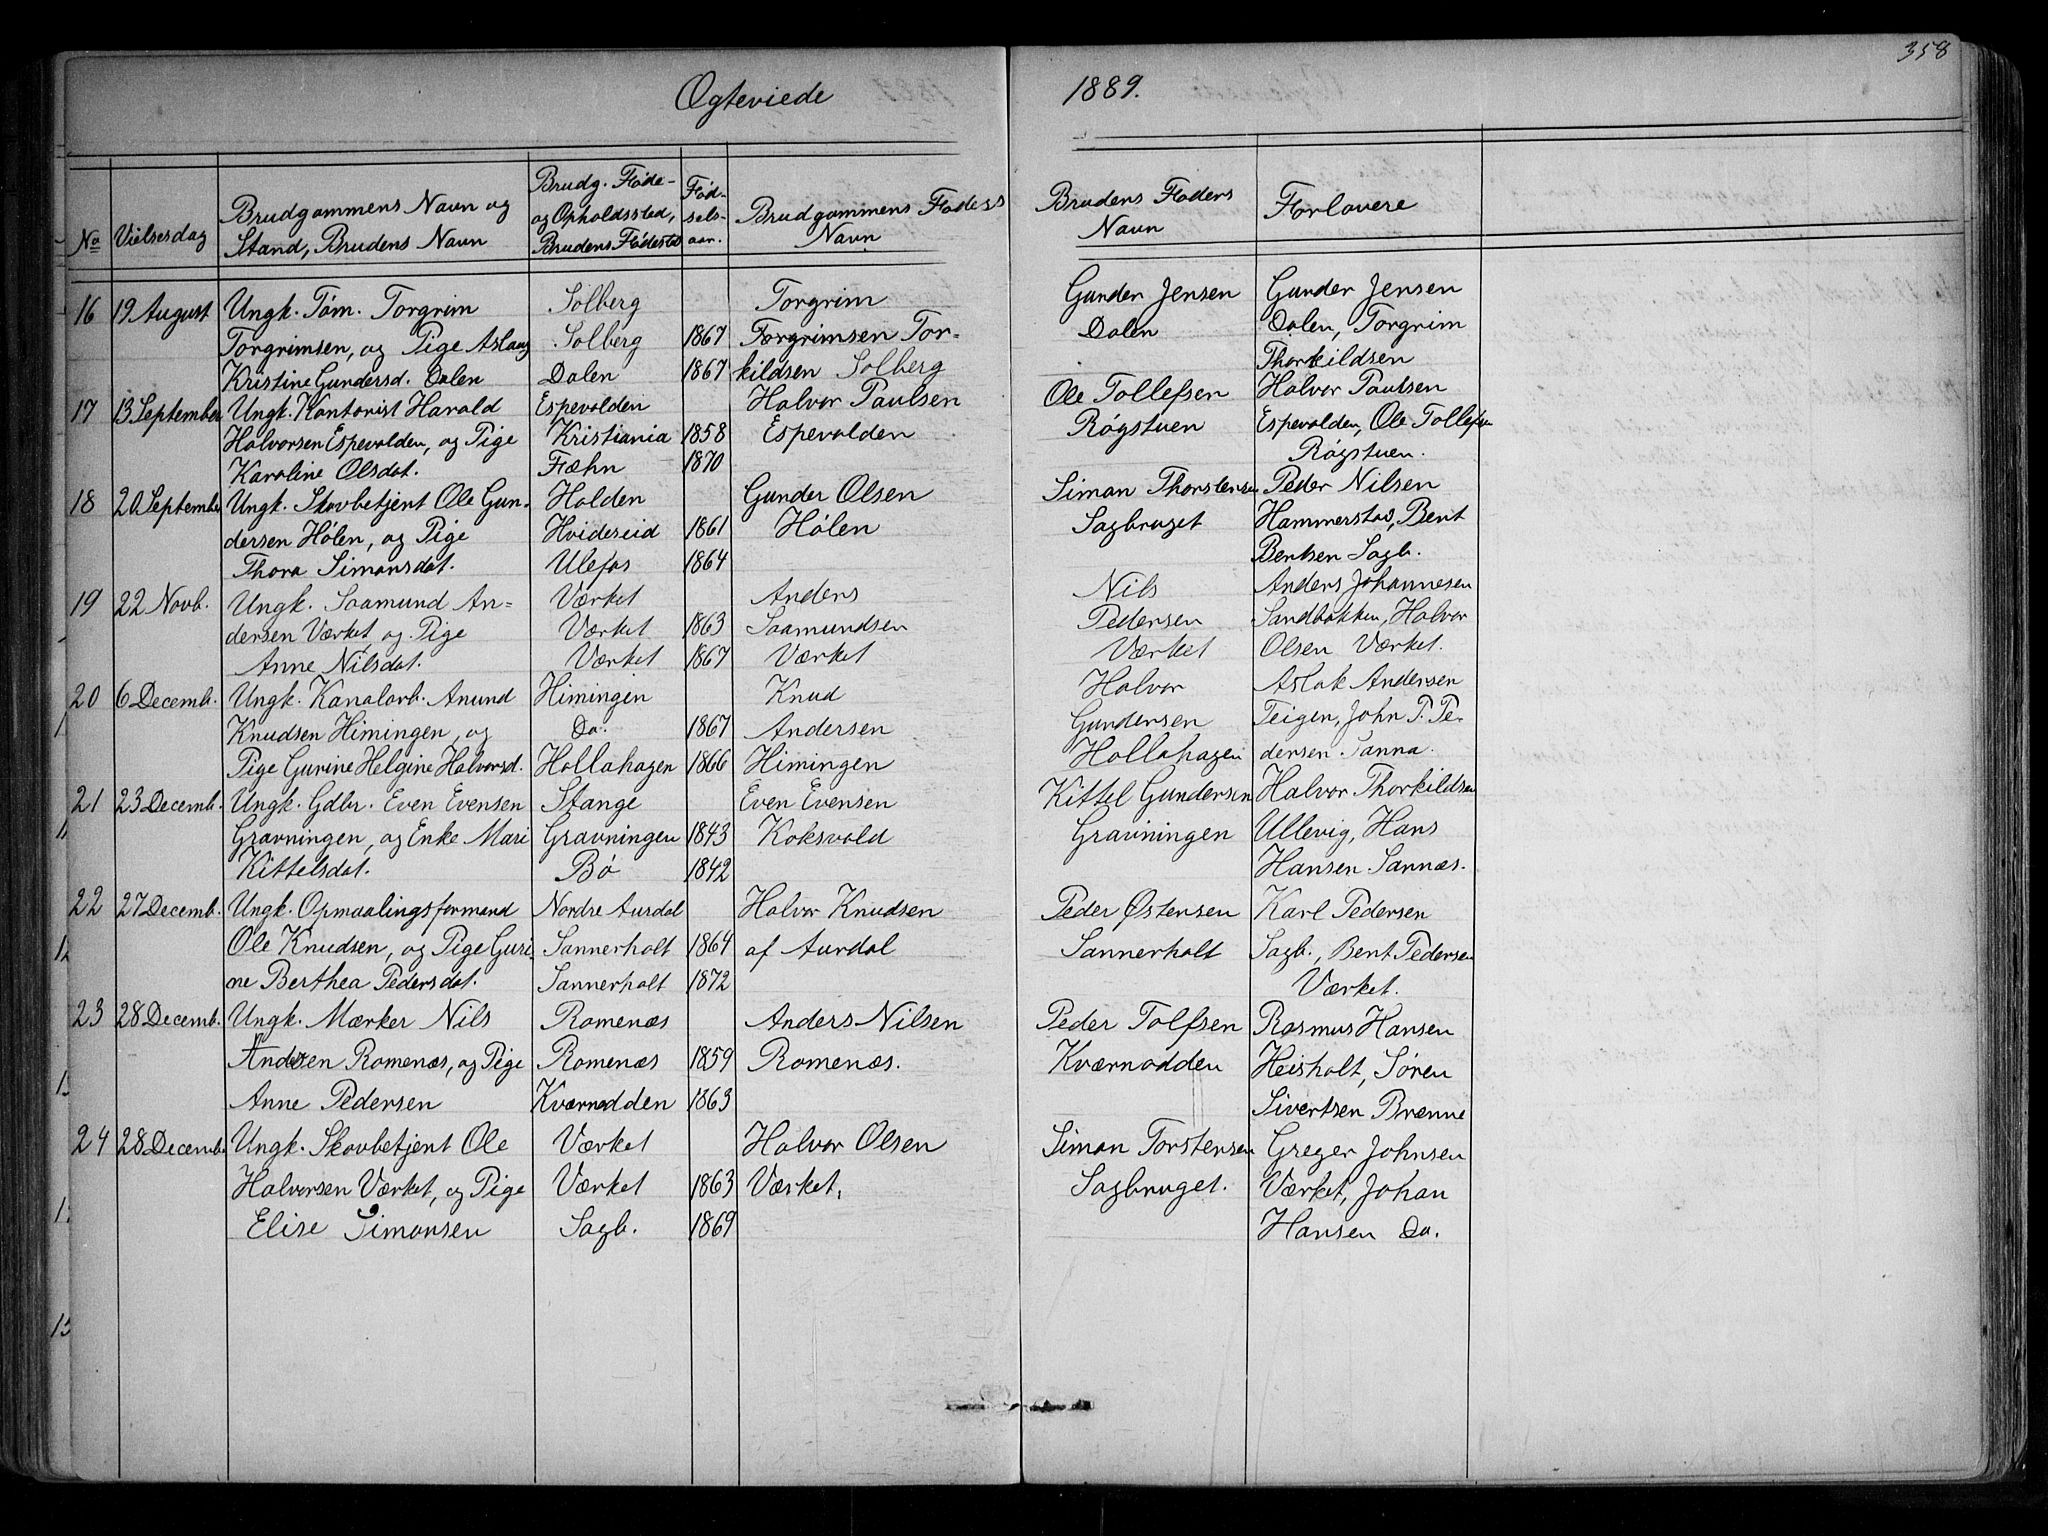 358
Ogteviede 1889.
No
Vielsesdag
Brudgommens Navn og
Stand, Brudens Navn
Brudg. Føde-
og Opholdssted,
Brudens Fødested
Fød-
sels-
aar.
Brudgommens Faders
Navn
Brudens Faders
Navn
Forlovere
16 19 August Ungk. Tøm. Torgrim Solberg Torgrim Gunder Jensen Gunder Jensen
Torgrimsen, og Pige Aslaug Solberg 1867 Torgrimsen Tor- Dalen Dalen, Torgrim
Kristine Gundersd. Dalen Dalen 1867 kildsen Solberg Thorkildsen
17 13 September Ungk. Kontorist Harald Espevalden Halvor Paulsen Ole Tollefsen Halvor Paulsen
Halvorsen Espevalden, og Pige Kristiania 1858 Espevalden Røgstuen Espevalden, Ole Tollefsen
Karoline Olsdat. Fæhn 1870 Røgstuen.
18 20 September Ungk. Skovbetjent Ole Gun- Holden Gunder Olsen Simon Thorstensen Peder Nilsen
dersen Hølen, og Pige Hvideseid 1861 Hølen Sagbruget Hammerstad, Bent
Thora Simonsdat. Ulefos 1864 Bentsen Sagb.
19 22 Novb. Ungk. Saamund An= Værket Anders Nils Anders Johannesen
dersen Værket og Pige Værket 1863 Saamundsen Pedersen Sandbakken, Halvor
Anne Nilsdat. Værket 1867 Værket Værket Olsen Værket.
20 6 Decemb. Ungk. Kanalarb. Anund Himingen Knud Halvor Aslak Andersen
Knudsen Himingen, og Do. 1867 Andersen Gundersen Teigen, John P. Pe-
Pige Gurine Helgine Halvorsd. Hollahagen 1866 Himingen Hollahagen dersen Tanna.
21 23 Decemb. Ungk. Gdbr. Even Evensen Stange Even Evensen Kittel Gundersen Halvor Thorkildsen
Gravningen, og Enke Mari Gravningen 1843 Koksvold Gravningen Ullevig, Hans
Kittelsdat. Bø 1842 Hansen Sannæs.
22 27 Decemb. Ungk. Opmaalingsformand Nordre Aurdal Halvor Knudsen Peder Østensen Karl Pedersen
Ole Knudsen, og Pige Guri- Sannerholt 1864 af Aurdal Sannerholt Sagb., Bent Pedersen
ne Berthea Pedersdat. Sannerholt 1872 Værket.
23 28 Decemb. Ungk. Mærker Nils Romenæs Anders Nilsen Peder Tolfsen Rasmus Hansen
Andersen Romenæs, og Pige Romenæs 1859 Romenæs. Kværnodden Heisholt, Søren
Anne Pedersen Kværnodden 1863 Sivertsen Brenne
24 28 Decemb Ungk. Skovbetjent Ole Værket Halvor Olsen Simon Torstensen Greger Johnsen
Halvorsen Værket, og Pige Værket 1863 Værket, Sagbruget. Værket, Johan
Elise Simonsen Sagb. 1869 Hansen Do.